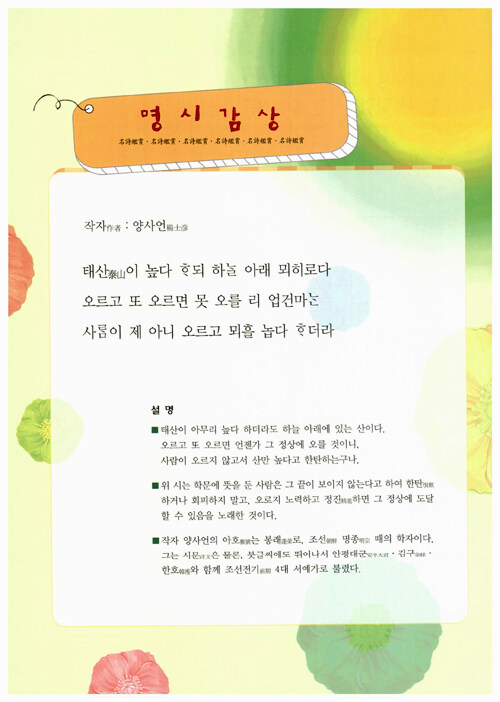 명시감상
名詩鑑賞 · 名詩鑑賞 · 名詩鑑賞 · 名詩鑑賞 · 名詩鑑賞 · 名詩鑑賞
작자作者 : 양사언楊士彦
태산泰山이 높다 ᄒᆞ되 하ᄂᆞᆯ 아래 뫼히로다
오르고 또 오르면 못 오를 리 업건마ᄂᆞᆫ
사ᄅᆞᆷ이 제 아니 오르고 뫼흘 놉다 ᄒᆞ더라
설 명
■ 태산이 아무리 높다 하더라도 하늘 아래에 있는 산이다.
오르고 또 오르면 언젠가 그 정상에 오를 것이니,
사람이 오르지 않고서 산만 높다고 한탄하는구나.
■ 위 시는 학문에 뜻을 둔 사람은 그 끝이 보이지 않는다고 하여 한탄恨歎
하거나 회피하지 말고, 오로지 노력하고 정진精進하면 그 정상에 도달
할 수 있음을 노래한 것이다.
■ 작자 양사언의 아호雅號는 봉래蓬萊로, 조선朝鮮 명종明宗 때의 학자이다.
그는 시문詩文은 물론, 붓글씨에도 뛰어나서 안평대군安平大君 · 김구金絿 ·
한호韓濩와 함께 조선전기前期 4대 서예가로 불렸다.